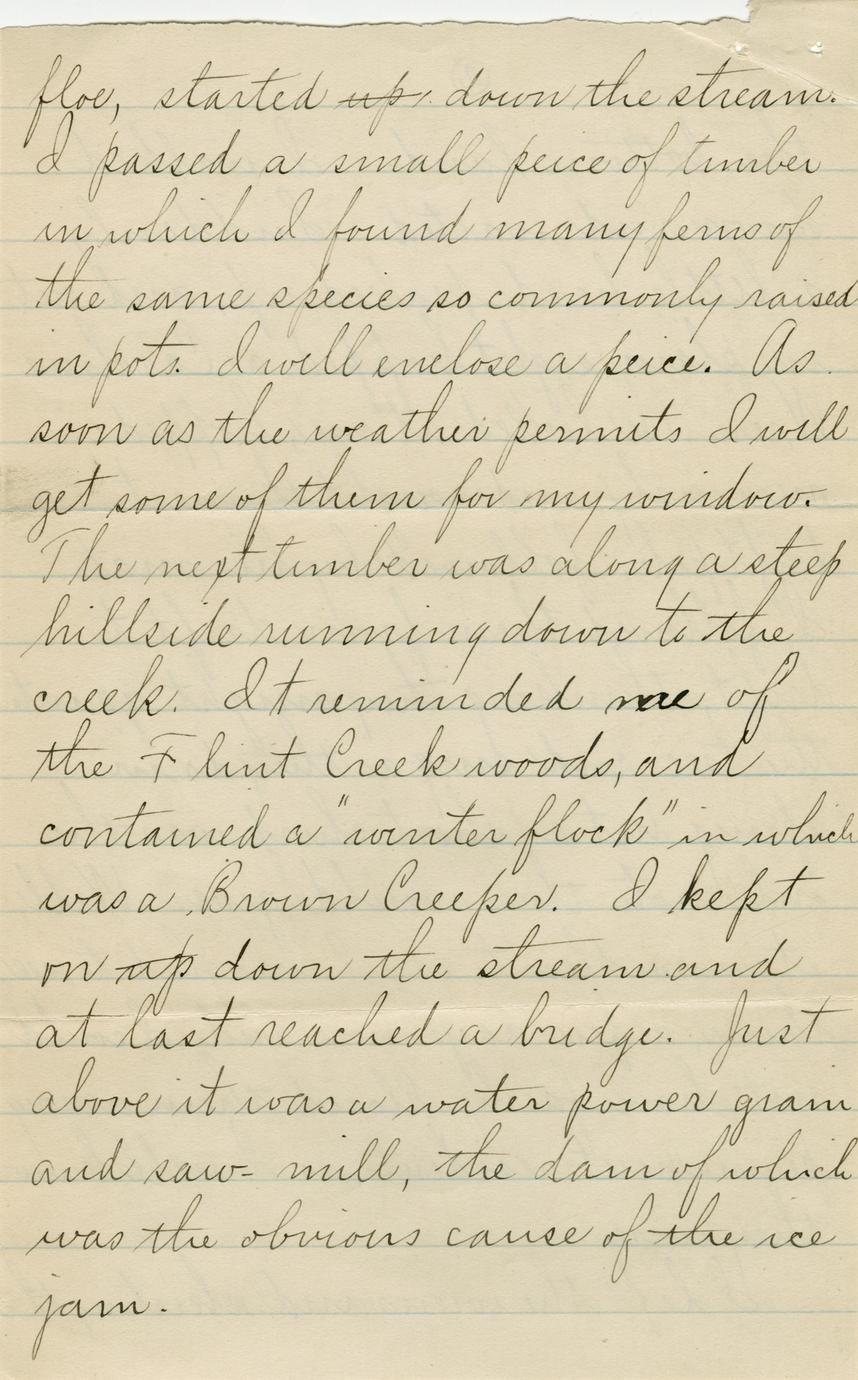 floe, started ~~up~~ down the stream.
I passed a small peice of timber
in which I found many ferns of
the same species so commonly raised
in pots. I will enclose a peice. As
soon as the weather permits I will
get some of them for my window.
The next timber was along a steep
hillside running down to the
creek. It reminded me of
the Flint Creek woods, and
contained a "winter flock" in which
was a Brown Creeper. I kept
on ~~up~~ down the stream and
at last reached a bridge. Just
above it was a water power grain
and saw-mill, the dam of which
was the obvious cause of the ice
jam.